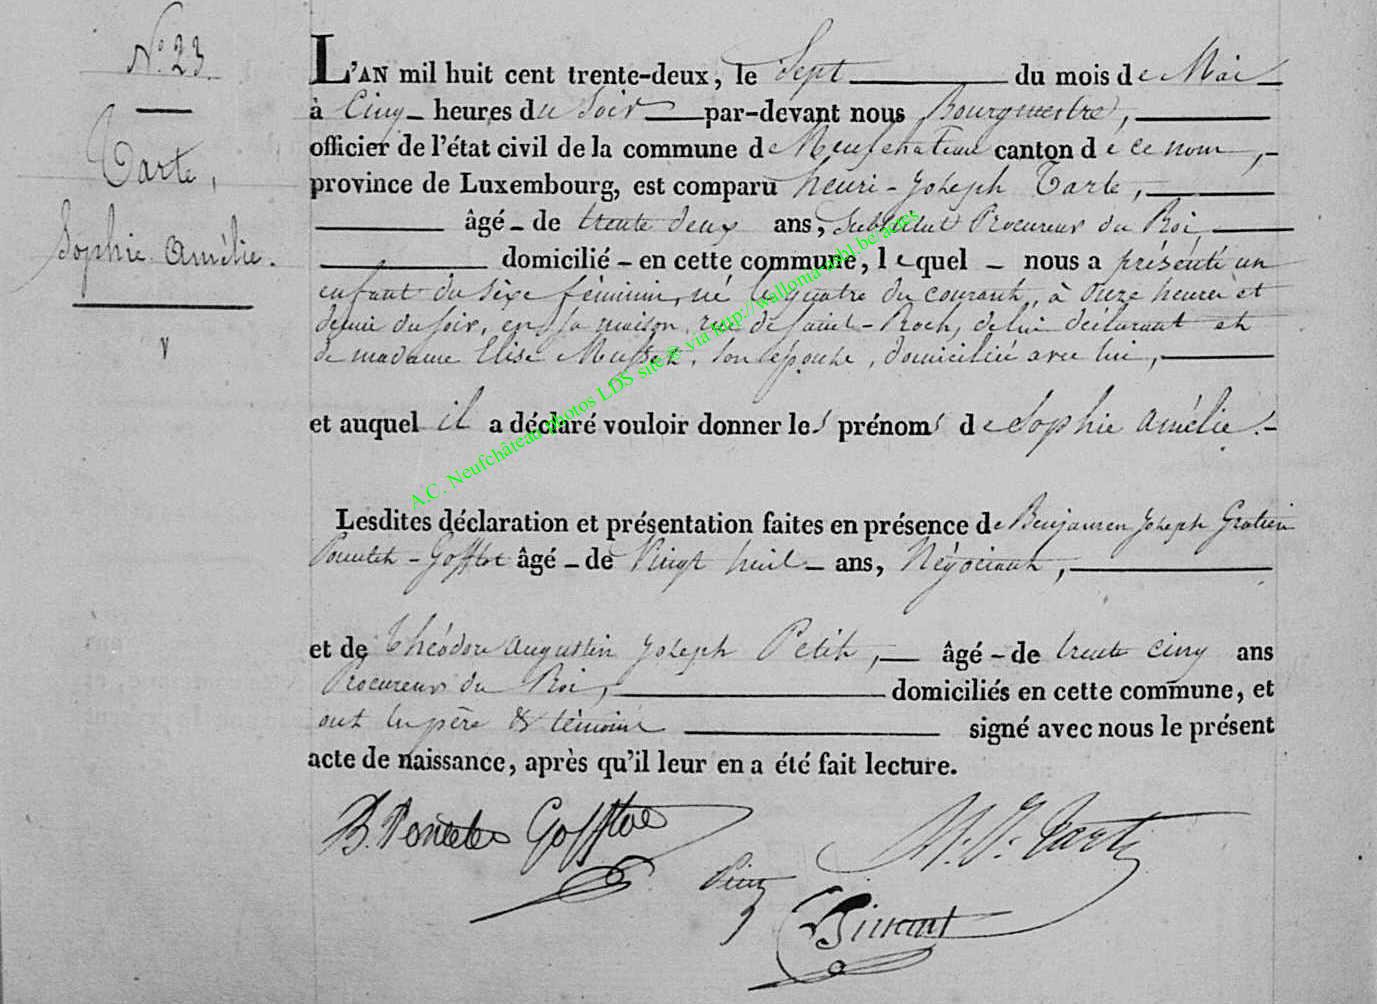 N.° 23
Tarte,
Sophie Amélie.
L'AN mil huit cent trente-deux, le Sept du mois de Mai
à Cinq heures du Soir par-devant nous Bourgmestre,
officier de l'état civil de la commune de Neufchateau canton de ce nom,
province de Luxembourg, est comparu henri-Joseph Tarte,
âgé - de trente deux ans, Substitut Procureur du Roi
domicilié - en cette commune, lequel - nous a présenté un
enfant du sèxe féminin, né le quatre du courant, à onze heures et
demie du soir, en sa maison, rue de Saint-Roch, de lui déclarant et
de madame Elise Musset, son épouse, domiciliée avec lui,
et auquel il a déclaré vouloir donner les prénoms de Sophie Amélie.
Lesdites déclaration et présentation faites en présence de Benjamin Joseph Gratien
Poncelet-Gofflot âgé - de Vingt huit ans, Négociant,
et de Théodore Augustin Joseph Petit, âgé - de trente cinq ans
Procureur du Roi, domiciliés en cette commune, et
ont les père & témoins signé avec nous le présent
acte de naissance, après qu'il leur en a été fait lecture.
B. Poncelet Gofflot H. J. Tarte
A.C. Neufchâteau photos LDS site © via http://wallonia-asbl.be/actes